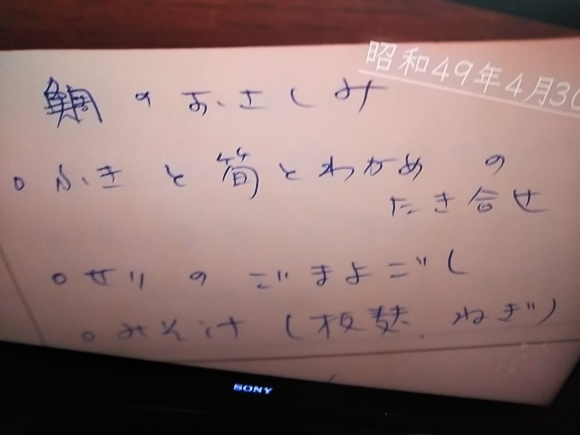 昭和49年4月30
鯛のおさしみ
ふきと筍とわかめの
たき合せ
せりのごまよごし
みそ汁(板麸、ねぎ)
SONY